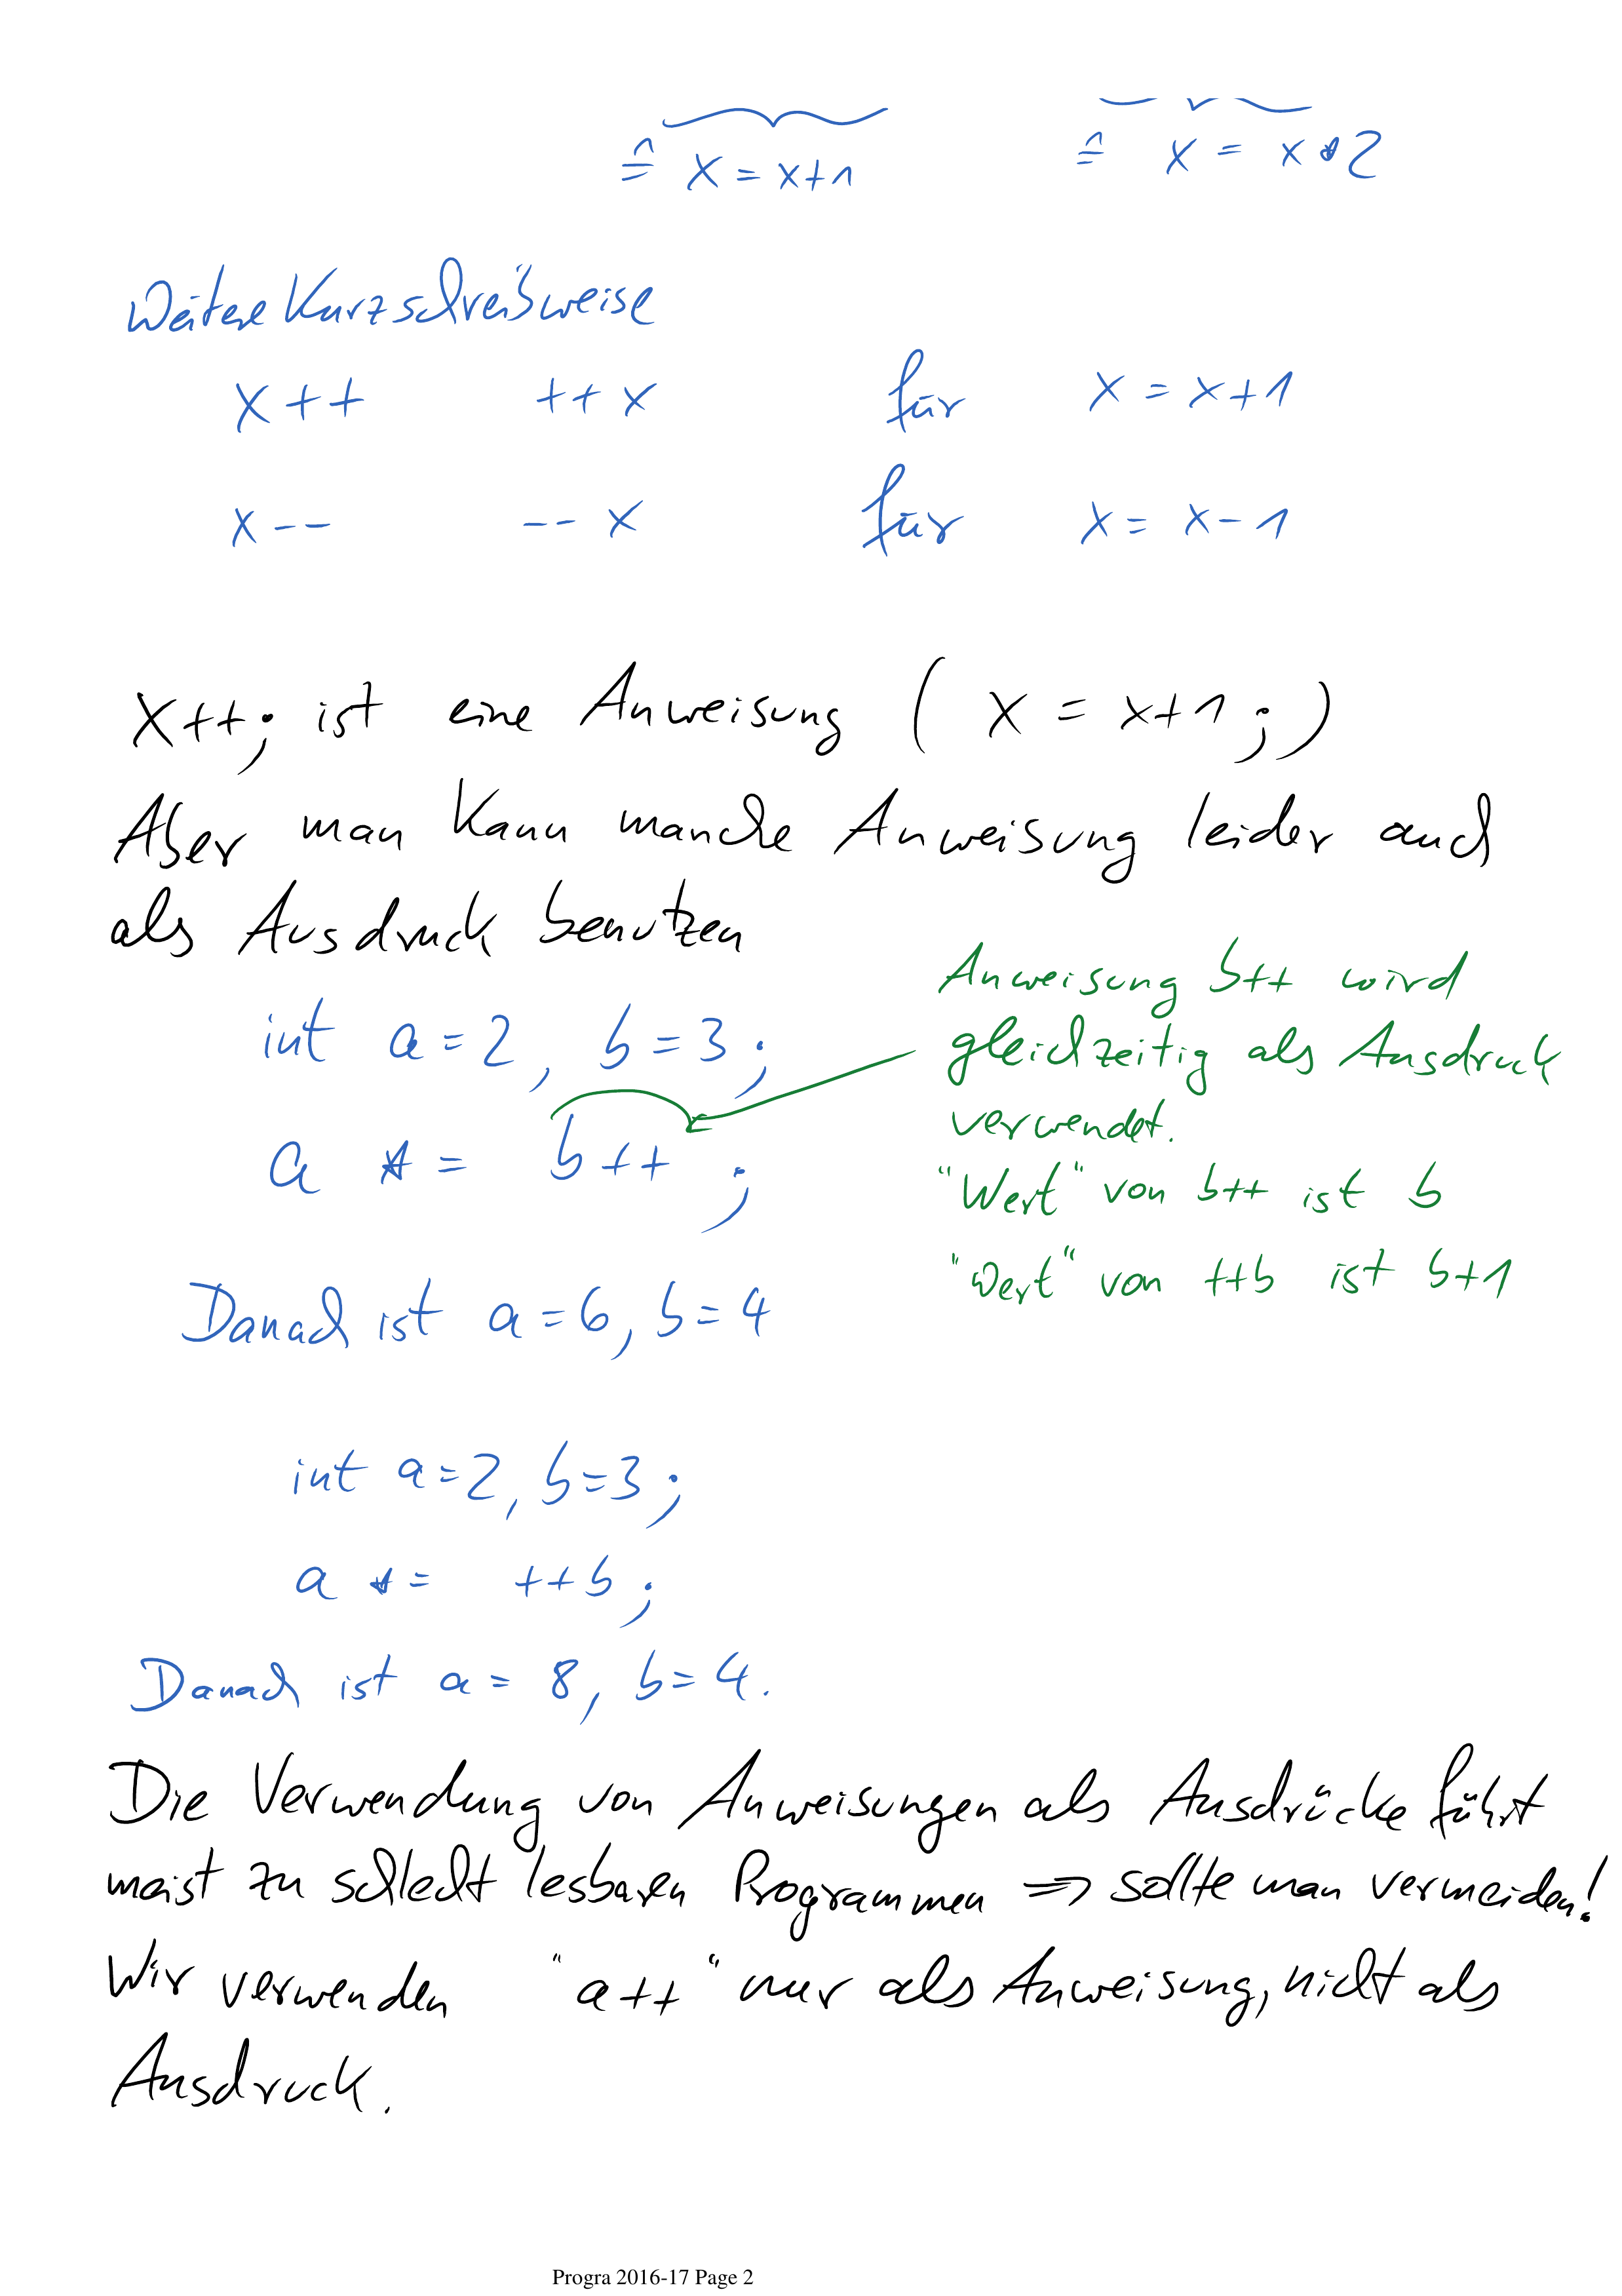 ≙ x = x+1 ≙ x = x*2
Weitere Kurzschreibweise
x++ ++x für x = x+1
x-- --x für x = x-1
x++; ist eine Anweisung ( x = x+1 ; )
Aber man kann manche Anweisung leider auch
als Ausdruck benutzen
int a = 2, b = 3;
a *= b++ ;
Anweisung b++ wird
gleichzeitig als Ausdruck
verwendet.
"Wert" von b++ ist b
"Wert" von ++b ist b+1
Danach ist a = 6, b = 4
int a = 2, b = 3;
a *= ++b ;
Danach ist a = 8, b = 4.
Die Verwendung von Anweisungen als Ausdrücke führt
meist zu schlecht lesbaren Programmen ⇒ sollte man vermeiden!
Wir verwenden "a++" nur als Anweisung, nicht als
Ausdruck.
Progra 2016-17 Page 2